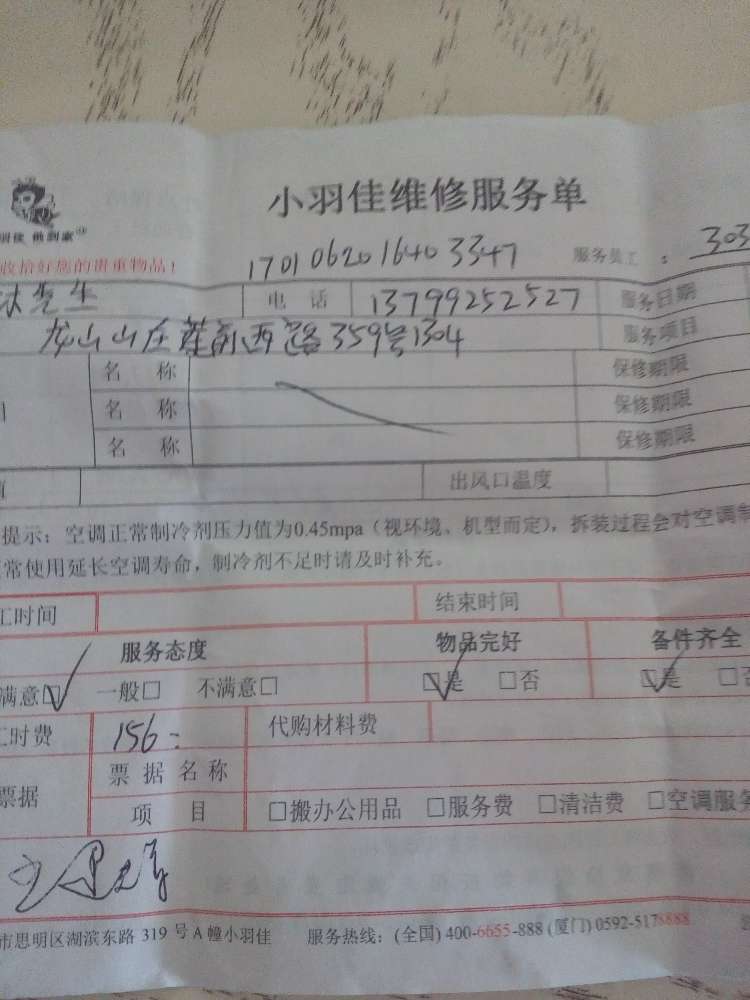 小羽佳维修服务单
做到家®
收拾好您的贵重物品！ 170106201640 3347 服务员工： 303
先生 电 话 13799252527 服务日期
龙山山庄莲前西路359号1304 服务项目
名 称 保修期限
名 称 保修期限
名 称 保修期限
值 出风口温度
提示：空调正常制冷剂压力值为0.45mpa（视环境、机型而定），拆装过程会对空调制
常使用延长空调寿命，制冷剂不足时请及时补充。
工时间 结束时间
服务态度 物品完好 备件齐全
满意☑ 一般□ 不满意□ ☑是 □否 ☑是 □否
工时费 156 代购材料费
票据 票 据 名 称
项 目 □搬办公用品 □服务费 □清洁费 □空调服务
市思明区湖滨东路 319 号 A 幢小羽佳 服务热线：(全国) 400-6655-888 (厦门) 0592-5178888